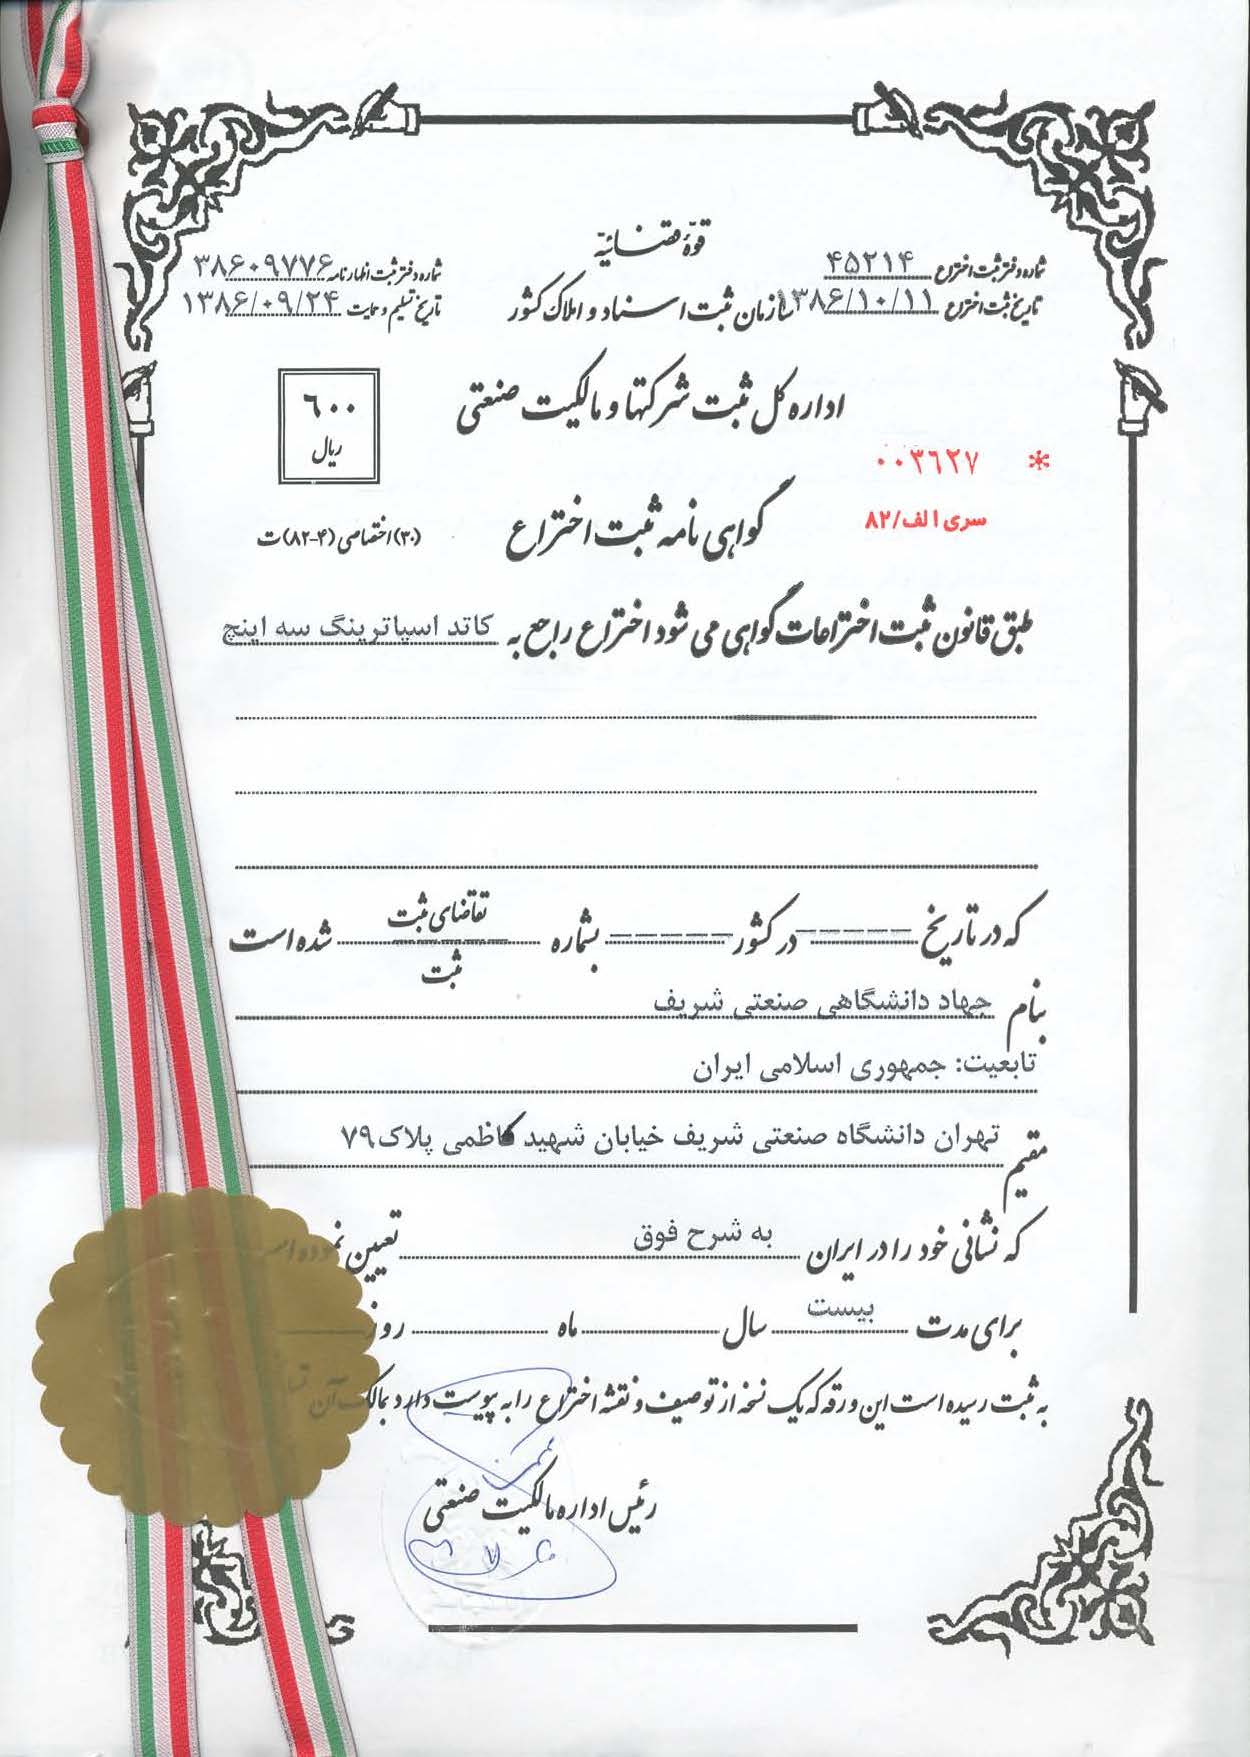 قوّهٔ قضائیّه
شماره دفتر ثبت اختراع ۴۵۲۱۴
شماره دفتر ثبت اظهارنامه ۳۸۶۰۹۷۷۶
تاریخ ثبت اختراع ۱۳۸۶/۱۰/۱۱
سازمان ثبت اسناد و املاک کشور
تاریخ تسلیم و حمایت ۱۳۸۶/۰۹/۲۴
اداره کل ثبت شرکتها و مالکیت صنعتی
۶۰۰
ریال
* ۰۰۳۶۲۷
سری الف/۸۲
گواهی نامه ثبت اختراع
(۳۰) اختصاصی (۴-۸۲) ت
طبق قانون ثبت اختراعات گواهی می شود اختراع راجع به کاتد اسپاترینگ سه اینچ
که در تاریخ ------ در کشور ------ بشماره تقاضای ثبت شده است
ثبت
بنام جهاد دانشگاهی صنعتی شریف
تابعیت: جمهوری اسلامی ایران
مقیم تهران دانشگاه صنعتی شریف خیابان شهید کاظمی پلاک ۷۹
که نشانی خود را در ایران به شرح فوق تعیین نموده
برای مدت بیست سال ماه روز
به ثبت رسیده است این ورقه که یک نسخه از توصیف و نقشه اختراع را به پیوست دارد بمالک آن
رئیس اداره مالکیت صنعتی